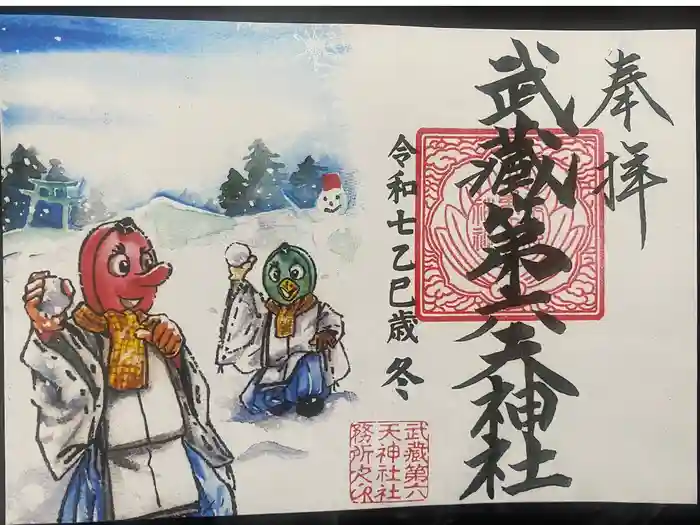 奉拝
武蔵第六天神社
令和七乙巳歳 冬
武蔵第六
天神社社
務所之印